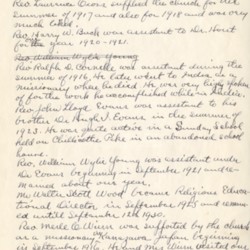 Rev. Laurence Cross supplied the church for the
summer of 1917 and also for 1918 and was very
much liked.
Rev. Harry W. Bush was assistant to Dr. Hurst
for the year 1920-1921.
Rev William Wylie Young
Rev. Ralph D. Cornuelle was assistant during the
summer of 1916. He later went to India, as a
missionary when he died. He was very
for the work he accomplished while in
Rev. John Lloyd Evans was assistant to his
brother Dr. Hugh I. Evans in the summer of
1923. He was quite active in a Sunday School
held on Chillicothe Pike in an abandoned school
house.
Rev. William Wylie Young was assistant under
Dr. Evans beginning in September 1921 and re-
mained about one year.
Mr. Walter Scott Wood became Religious Educa-
tional Director in September 1925 and remain-
ed until September 1st 1930.
Rev. Merle C. Winn was supported by the church
as a missionary to Japan beginning
in September 1916. He and Mrs Winn visited